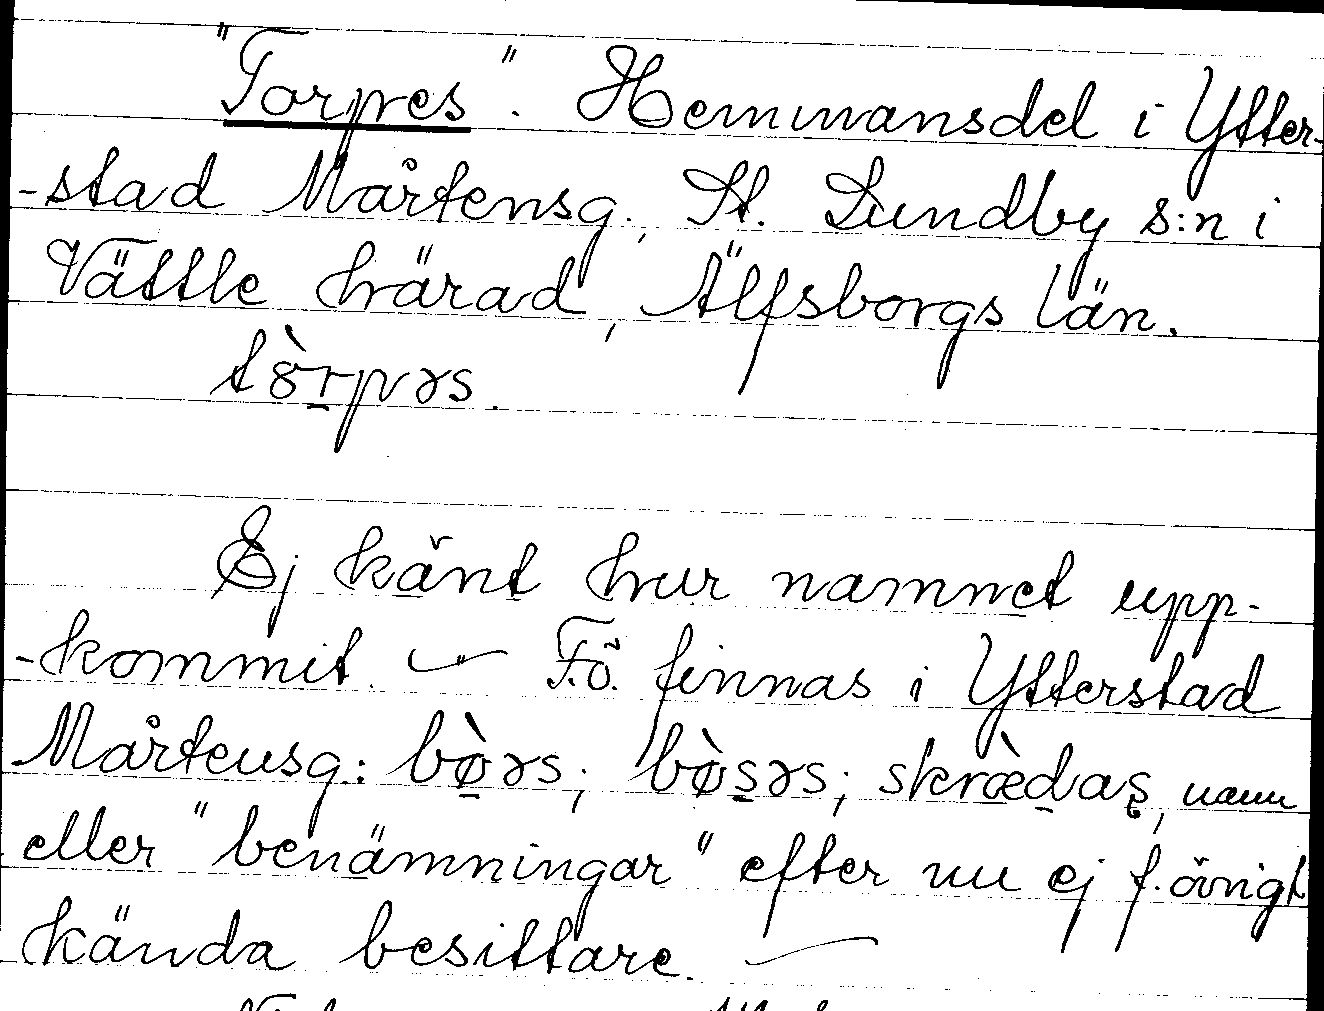 "Torpes". Hemmansdel i Ytter-
-stad Mårtensg., St. Lundby s:n i
Vättle härad, Älfsborgs län.
tòrpəs.
Ej känt hur namnet upp-
-kommit. — F.ö. finnas i Ytterstad
Mårtensg: bø̀əs; bø̀səs; skræ̀das, namn
eller "benämningar" efter nu ej f. övrigt
kända besittare. —